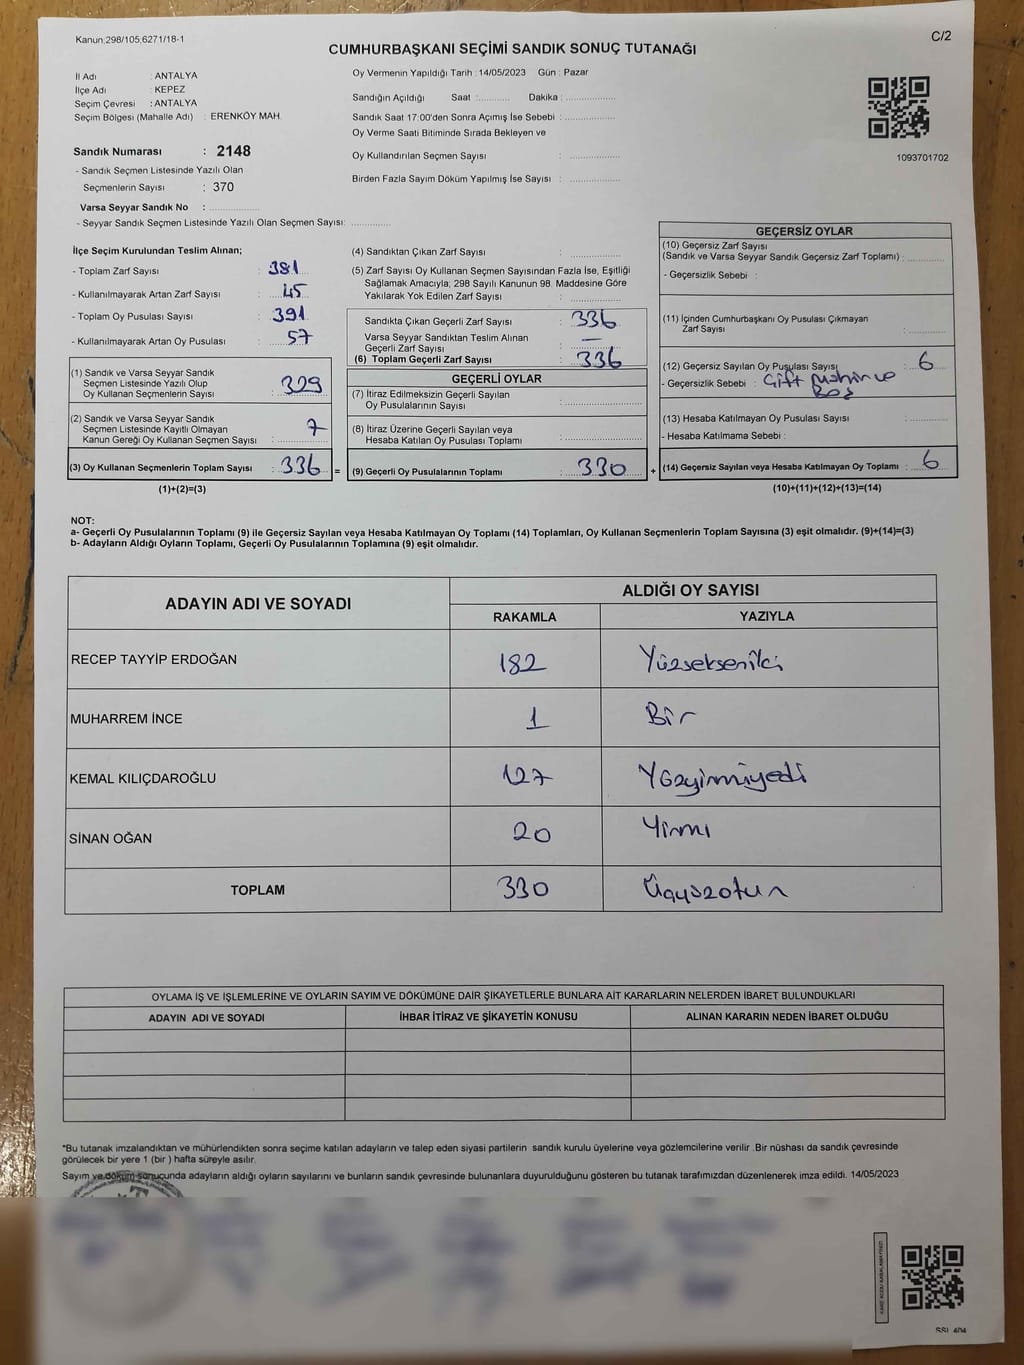 Kanun:298/105,6271/18-1
C/2
CUMHURBAŞKANI SEÇİMİ SANDIK SONUÇ TUTANAĞI
İl Adı : ANTALYA
İlçe Adı : KEPEZ
Seçim Çevresi : ANTALYA
Seçim Bölgesi (Mahalle Adı) : ERENKÖY MAH.
Sandık Numarası : 2148
- Sandık Seçmen Listesinde Yazılı Olan
Seçmenlerin Sayısı : 370
Varsa Seyyar Sandık No :
- Seyyar Sandık Seçmen Listesinde Yazılı Olan Seçmen Sayısı:
Oy Vermenin Yapıldığı Tarih : 14/05/2023 Gün : Pazar
Sandığın Açıldığı Saat : Dakika :
Sandık Saat 17:00'den Sonra Açımış İse Sebebi :
Oy Verme Saati Bitiminde Sırada Bekleyen ve
Oy Kullandırılan Seçmen Sayısı :
Birden Fazla Sayım Döküm Yapılmış İse Sayısı :
1093701702
İlçe Seçim Kurulundan Teslim Alınan;
- Toplam Zarf Sayısı : 381
- Kullanılmayarak Artan Zarf Sayısı : 45
- Toplam Oy Pusulası Sayısı : 391
- Kullanılmayarak Artan Oy Pusulası : 57
(1) Sandık ve Varsa Seyyar Sandık
Seçmen Listesinde Yazılı Olup
Oy Kullanan Seçmenlerin Sayısı : 329
(2) Sandık ve Varsa Seyyar Sandık
Seçmen Listesinde Kayıtlı Olmayan
Kanun Gereği Oy Kullanan Seçmen Sayısı : 7
(3) Oy Kullanan Seçmenlerin Toplam Sayısı : 336 =
(1)+(2)=(3)
(4) Sandıktan Çıkan Zarf Sayısı :
(5) Zarf Sayısı Oy Kullanan Seçmen Sayısından Fazla İse, Eşitliği
Sağlamak Amacıyla, 298 Sayılı Kanunun 98. Maddesine Göre
Yakılarak Yok Edilen Zarf Sayısı :
Sandıkta Çıkan Geçerli Zarf Sayısı : 336
Varsa Seyyar Sandıktan Teslim Alınan
Geçerli Zarf Sayısı : —
(6) Toplam Geçerli Zarf Sayısı : 336
GEÇERLİ OYLAR
(7) İtiraz Edilmeksizin Geçerli Sayılan
Oy Pusulalarının Sayısı :
(8) İtiraz Üzerine Geçerli Sayılan veya
Hesaba Katılan Oy Pusulası Toplamı :
(9) Geçerli Oy Pusulalarının Toplamı : 330 +
GEÇERSİZ OYLAR
(10) Geçersiz Zarf Sayısı
(Sandık ve Varsa Seyyar Sandık Geçersiz Zarf Toplamı) :
- Geçersizlik Sebebi :
(11) İçinden Cumhurbaşkanı Oy Pusulası Çıkmayan
Zarf Sayısı :
(12) Geçersiz Sayılan Oy Pusulası Sayısı : 6
- Geçersizlik Sebebi : Çift Mühür ve
Boş
(13) Hesaba Katılmayan Oy Pusulası Sayısı :
- Hesaba Katılmama Sebebi :
(14) Geçersiz Sayılan veya Hesaba Katılmayan Oy Toplamı : 6
(10)+(11)+(12)+(13)=(14)
NOT:
a- Geçerli Oy Pusulalarının Toplamı (9) ile Geçersiz Sayılan veya Hesaba Katılmayan Oy Toplamı (14) Toplamları, Oy Kullanan Seçmenlerin Toplam Sayısına (3) eşit olmalıdır. (9)+(14)=(3)
b- Adayların Aldığı Oyların Toplamı, Geçerli Oy Pusulalarının Toplamına (9) eşit olmalıdır.
ADAYIN ADI VE SOYADI ALDIĞI OY SAYISI
RAKAMLA YAZIYLA
RECEP TAYYİP ERDOĞAN 182 Yüzseksenİki
MUHARREM İNCE 1 Bir
KEMAL KILIÇDAROĞLU 127 Yüzyirmiyedi
SİNAN OĞAN 20 Yirmi
TOPLAM 330 Üçyüzotuz
OYLAMA İŞ VE İŞLEMLERİNE VE OYLARIN SAYIM VE DÖKÜMÜNE DAİR ŞİKAYETLERLE BUNLARA AİT KARARLARIN NELERDEN İBARET BULUNDUKLARI
ADAYIN ADI VE SOYADI İHBAR İTİRAZ VE ŞİKAYETİN KONUSU ALINAN KARARIN NEDEN İBARET OLDUĞU
*Bu tutanak imzalandıktan ve mühürlendikten sonra seçime katılan adayların ve talep eden siyasi partilerin sandık kurulu üyelerine veya gözlemcilerine verilir .Bir nüshası da sandık çevresinde
görülecek bir yere 1 (bir ) hafta süreyle asılır.
Sayım ve döküm sonucunda adayların aldığı oyların sayılarını ve bunların sandık çevresinde bulunanlara duyurulduğunu gösteren bu tutanak tarafımızdan düzenlenerek imza edildi. 14/05/2023